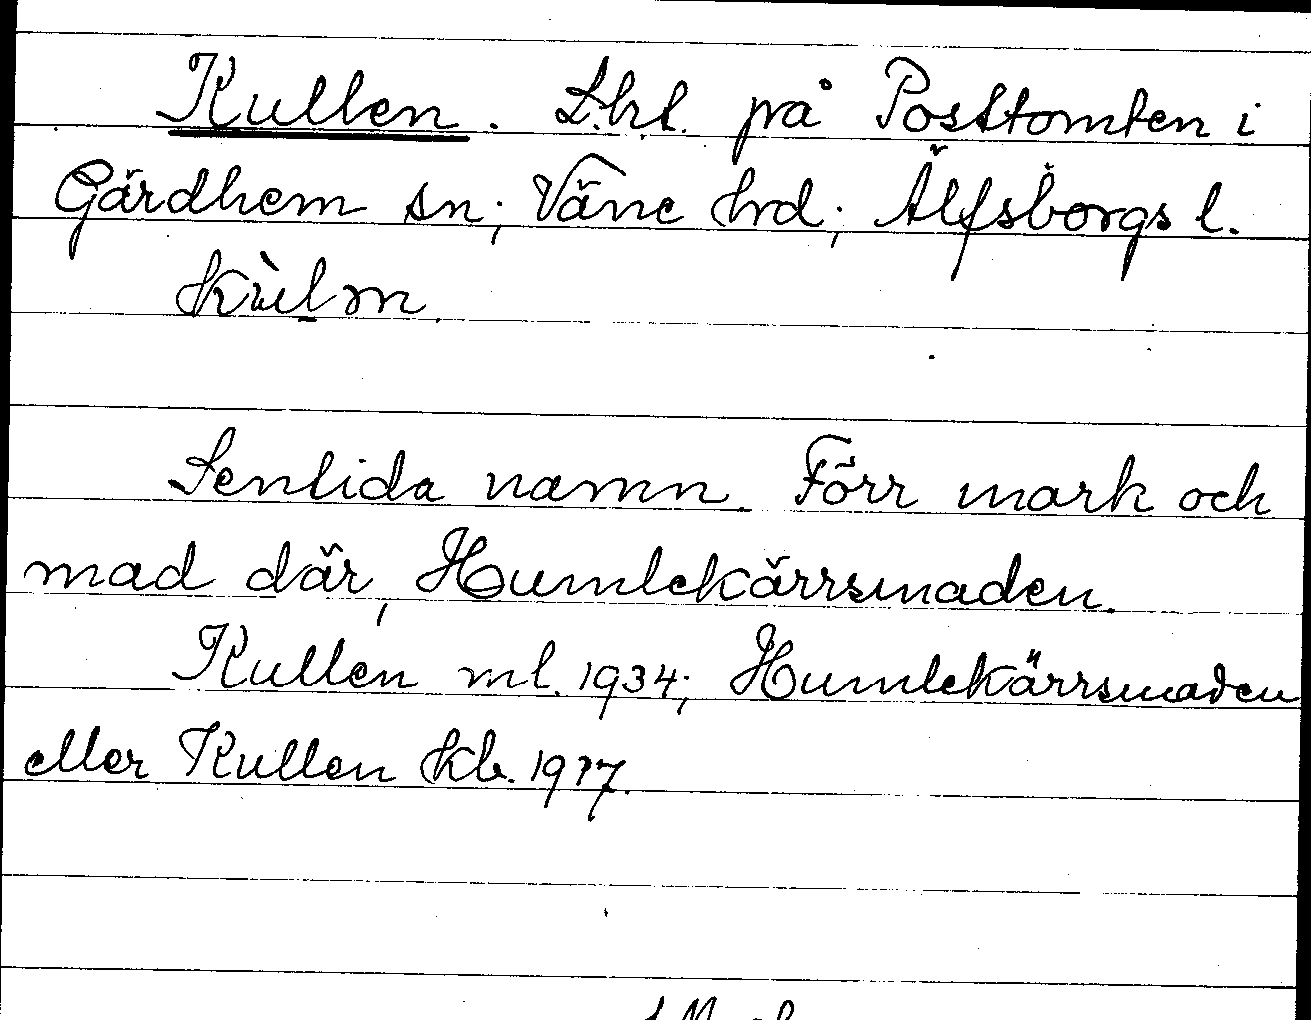 Kullen. Lht. på Posttomten i
Gärdhem sn; Väne hrd; Älfsborgs l.
Sentida namn. Förr mark och
mad där, Humlekärrsmaden.
Kullen ml. 1934; Humlekärrsmaden
eller Kullen kb. 1937.